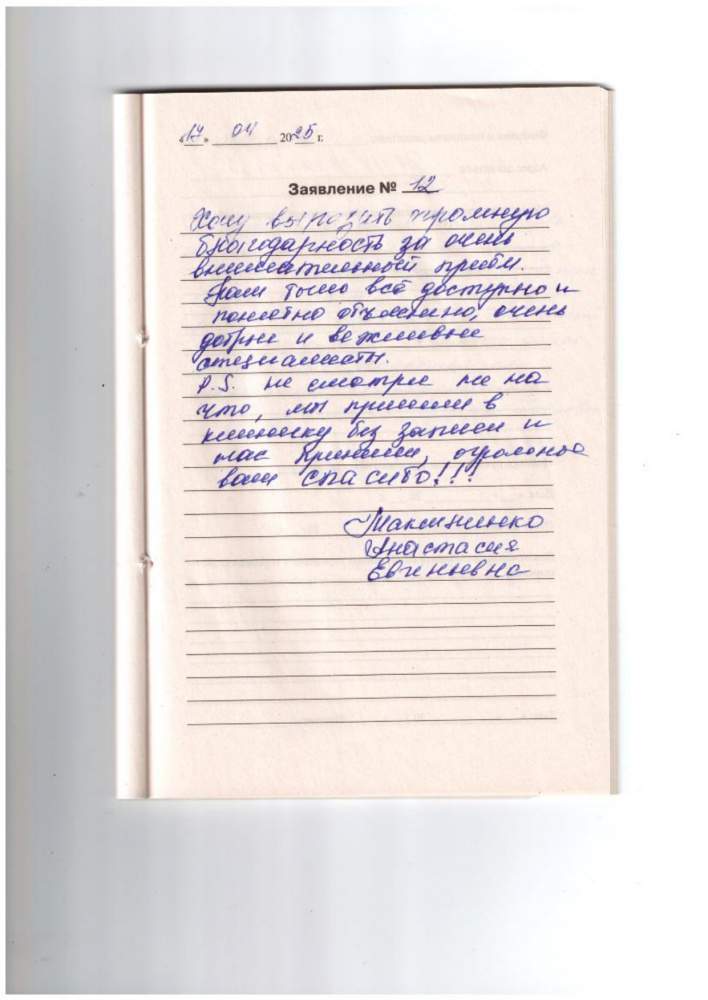 «17» 04 2025 г.
Заявление № 12
Хочу выразить огромную
благодарность за очень
внимательный приём.
Нам было всё доступно и
понятно объяснено, очень
добрые и вежливые
специалисты.
P.S. не смотря не на
что, мы пришли в
клинику без записи и
нас приняли, огромное
вам спасибо!!!
Анастасия
Евгеньевна